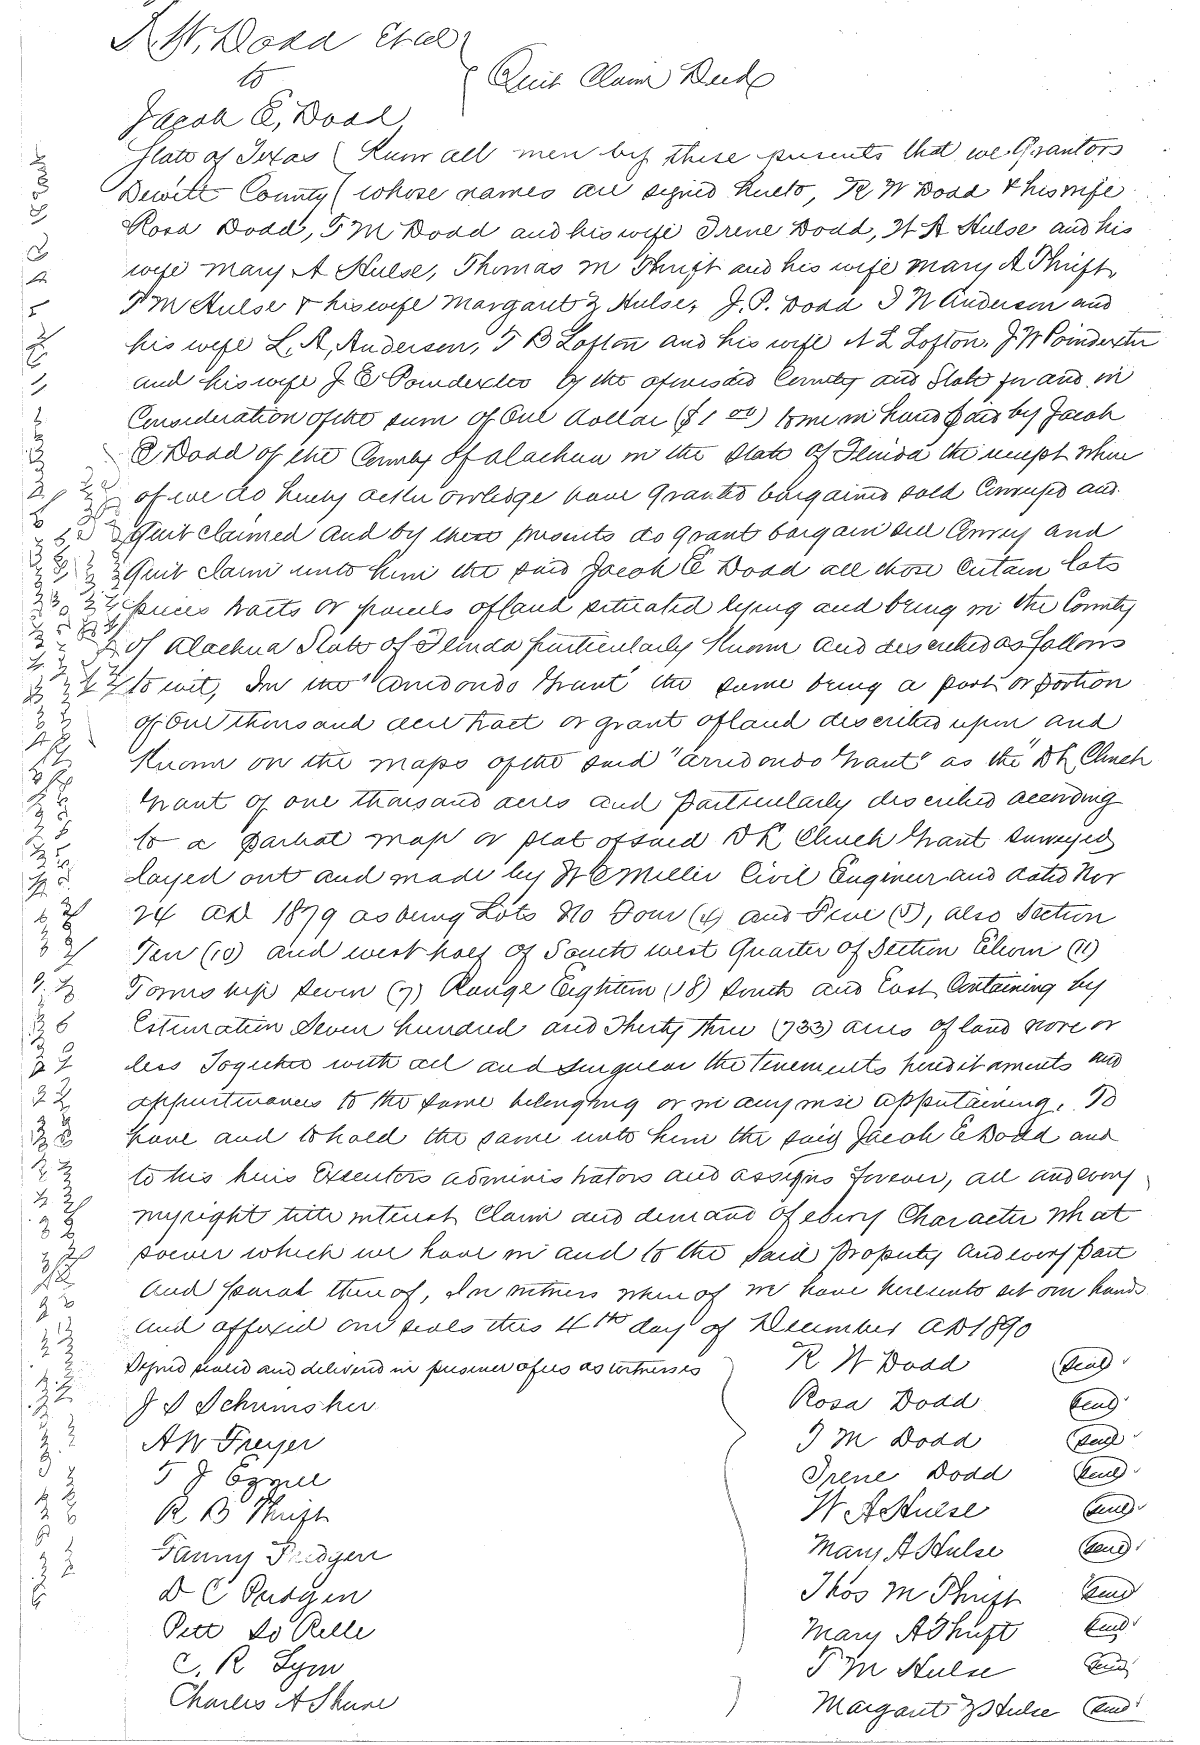 R. W. Dodd et al
to
Quit Claim Deed
Jacob E, Dodd
State of Texas ( Know all men by these presents that we Grantors
Dewitt County ( whose names are signed hereto, R W Dodd & his wife
Rosa Dodd, T M Dodd and his wife Irene Dodd, W A Hulse and his
wife Mary A Hulse, Thomas M Thrift and his wife Mary A Thrift,
T M Hulse & his wife Margaret Z Hulse, J. P. Dodd I N Anderson and
his wife L. A, Anderson, T B Lofton and his wife A L Lofton. J W Poindexter
and his wife J E Poindexter of the aforesaid County and State for and in
Consideration of the sum of One dollar ($1 00) to me in hand paid by Jacob
E Dodd of the County of Alachua in the State of Florida the receipt where
of we do hereby acknowledge have granted bargained sold Conveyed and
Quit claimed and by these presents do grant bargain sell Convey and
Quit claim unto him the said Jacob E Dodd all those Certain lots
pieces tracts or parcels of land situated lying and being in the County
of Alachua State of Florida particularly Known and described as follows
to wit, In the "Arredondo Grant" the same being a part or portion
of one thousand acre tract or grant of land described upon and
Known on the maps of the said "Arredondo Grant" as the "D L Clinch
Grant of one thousand acres and particularly described according
to a partial map or plat of said D L Clinch Grant surveyed
layed out and made by W C Miller Civil Engineer and dated Nov
24 AD 1879 as being Lots No Four (4) and Five (5), also Section
Ten (10) and west half of South west Quarter of Section Eleven (11)
Township Seven (7) Range Eighteen (18) South and East Containing by
Estimation Seven hundred and Thirty three (733) acres of land more or
less Together with all and singular the tenements hereditaments and
appurtenances to the same belonging or in any wise appertaining, To
have and to hold the same unto him the said Jacob E Dodd and
to his heirs Executors administrators and assigns forever, all and every
my right title interest Claim and demand of every Character what
soever which we have in and to the said property and every part
and parcel thereof, In witness whereof we have hereunto set our hands
and affixed our seals this 4th day of December AD 1890
Signed sealed and delivered in presence of us as witnesses
R W Dodd seal
J S Schrimsher
Rosa Dodd seal
A W Freyer
T M Dodd seal
T J Ezzell
Irene Dodd seal
R B Thrift
W A Hulse seal
Fanny Pridgen
Mary A Hulse seal
D C Pridgen
Thos M Thrift seal
Pett So Relle
Mary A Thrift seal
C. R Lynn
T M Hulse seal
Charles A Shure
Margaret Z Hulse seal